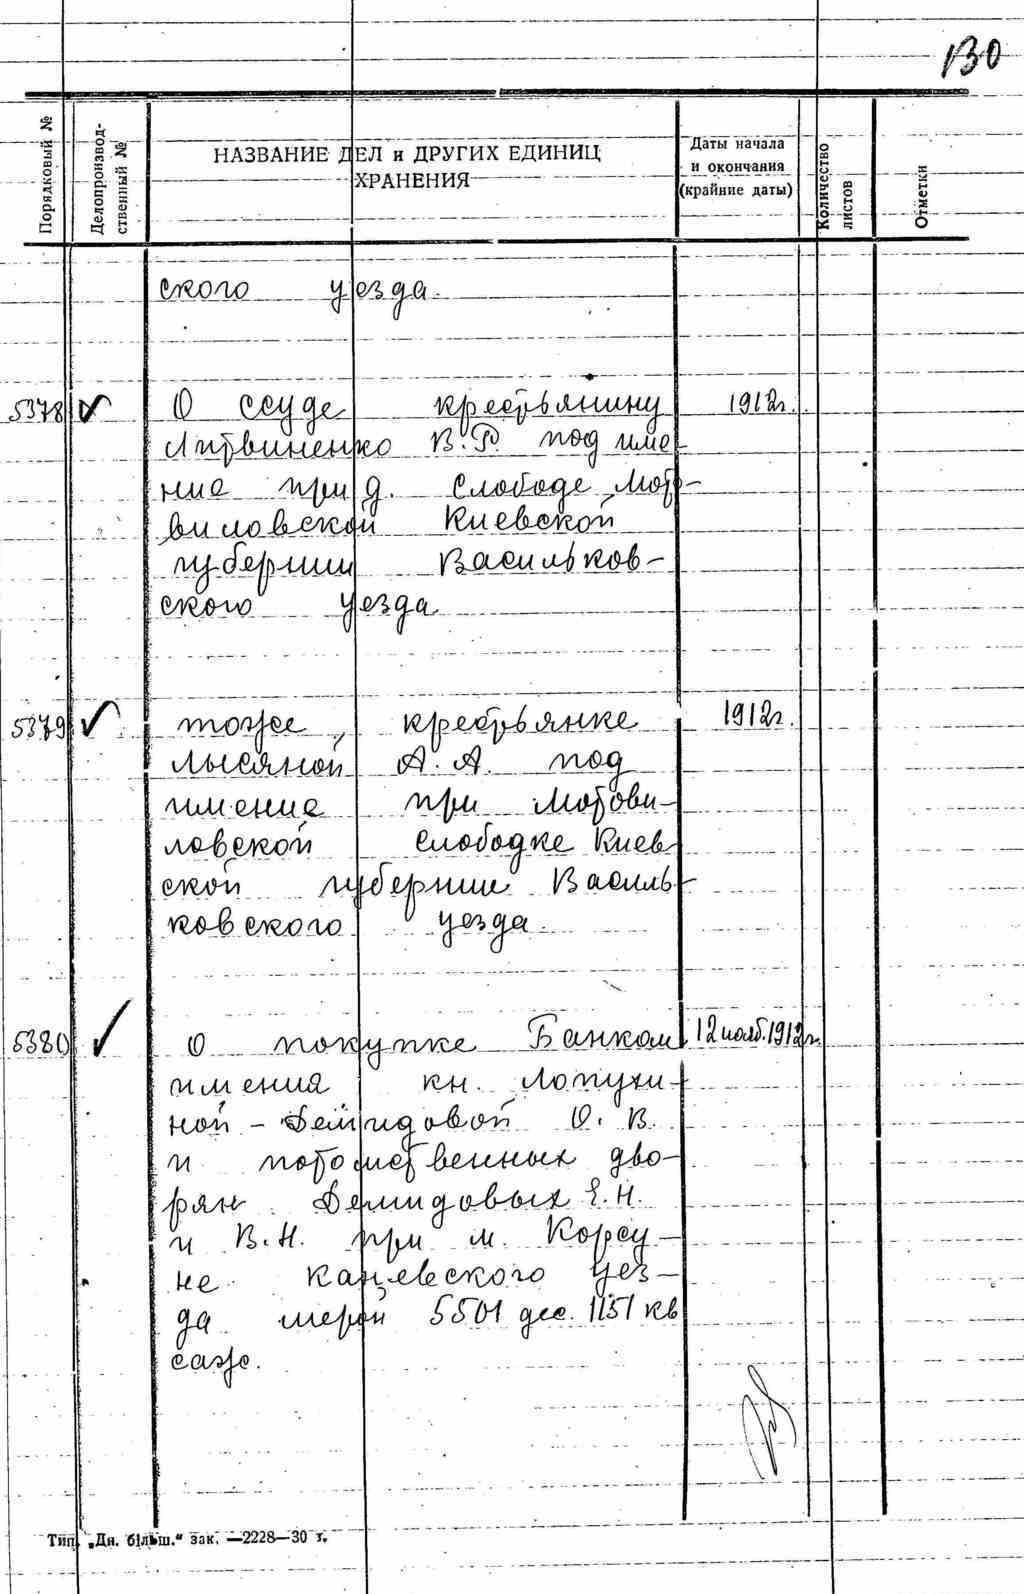 130
Порядковый №
Делопроизвод-
ственный №
НАЗВАНИЕ ДЕЛ и ДРУГИХ ЕДИНИЦ
ХРАНЕНИЯ
Даты начала
и окончания
(крайние даты)
Количество
листов
Отметки
ского уезда.
5378 О ссуде крестьянину 1912г.
Литвиненко В.Р. под име
ние при д. Слободе Мот-
виловской Киевской
губернии Васильков-
ского уезда
5379 тоже, крестьянке 1912г.
Лысяной А.А. под
имение при Мотови-
ловской Слободке Киев-
ской губернии Василь-
ковского уезда.
5380 О покупке Банком 12 нояб. 1912г.
имения кн. Лопухи-
ной-Демидовой О.В.
и потомственных дво-
рян Демидовых Е.Н.
и В.Н. при м. Корсу-
не Каневского уез-
да мерой 5501 дес. 1151 кв
саж.
Тип. „Дн. більш." зак. —2228—30 г.